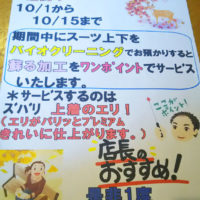 10/1から
10/15まで
期間中にスーツ上下を
バイオクリーニングでお預かりすると
蘇る加工をワンポイントでサービス
いたします。
＊サービスするのは
ズバリ 上着のエリ！
（エリがパリッとプレミアム
きれいに仕上がります。）
ここが
ポイント！
店長の
おすすめ！